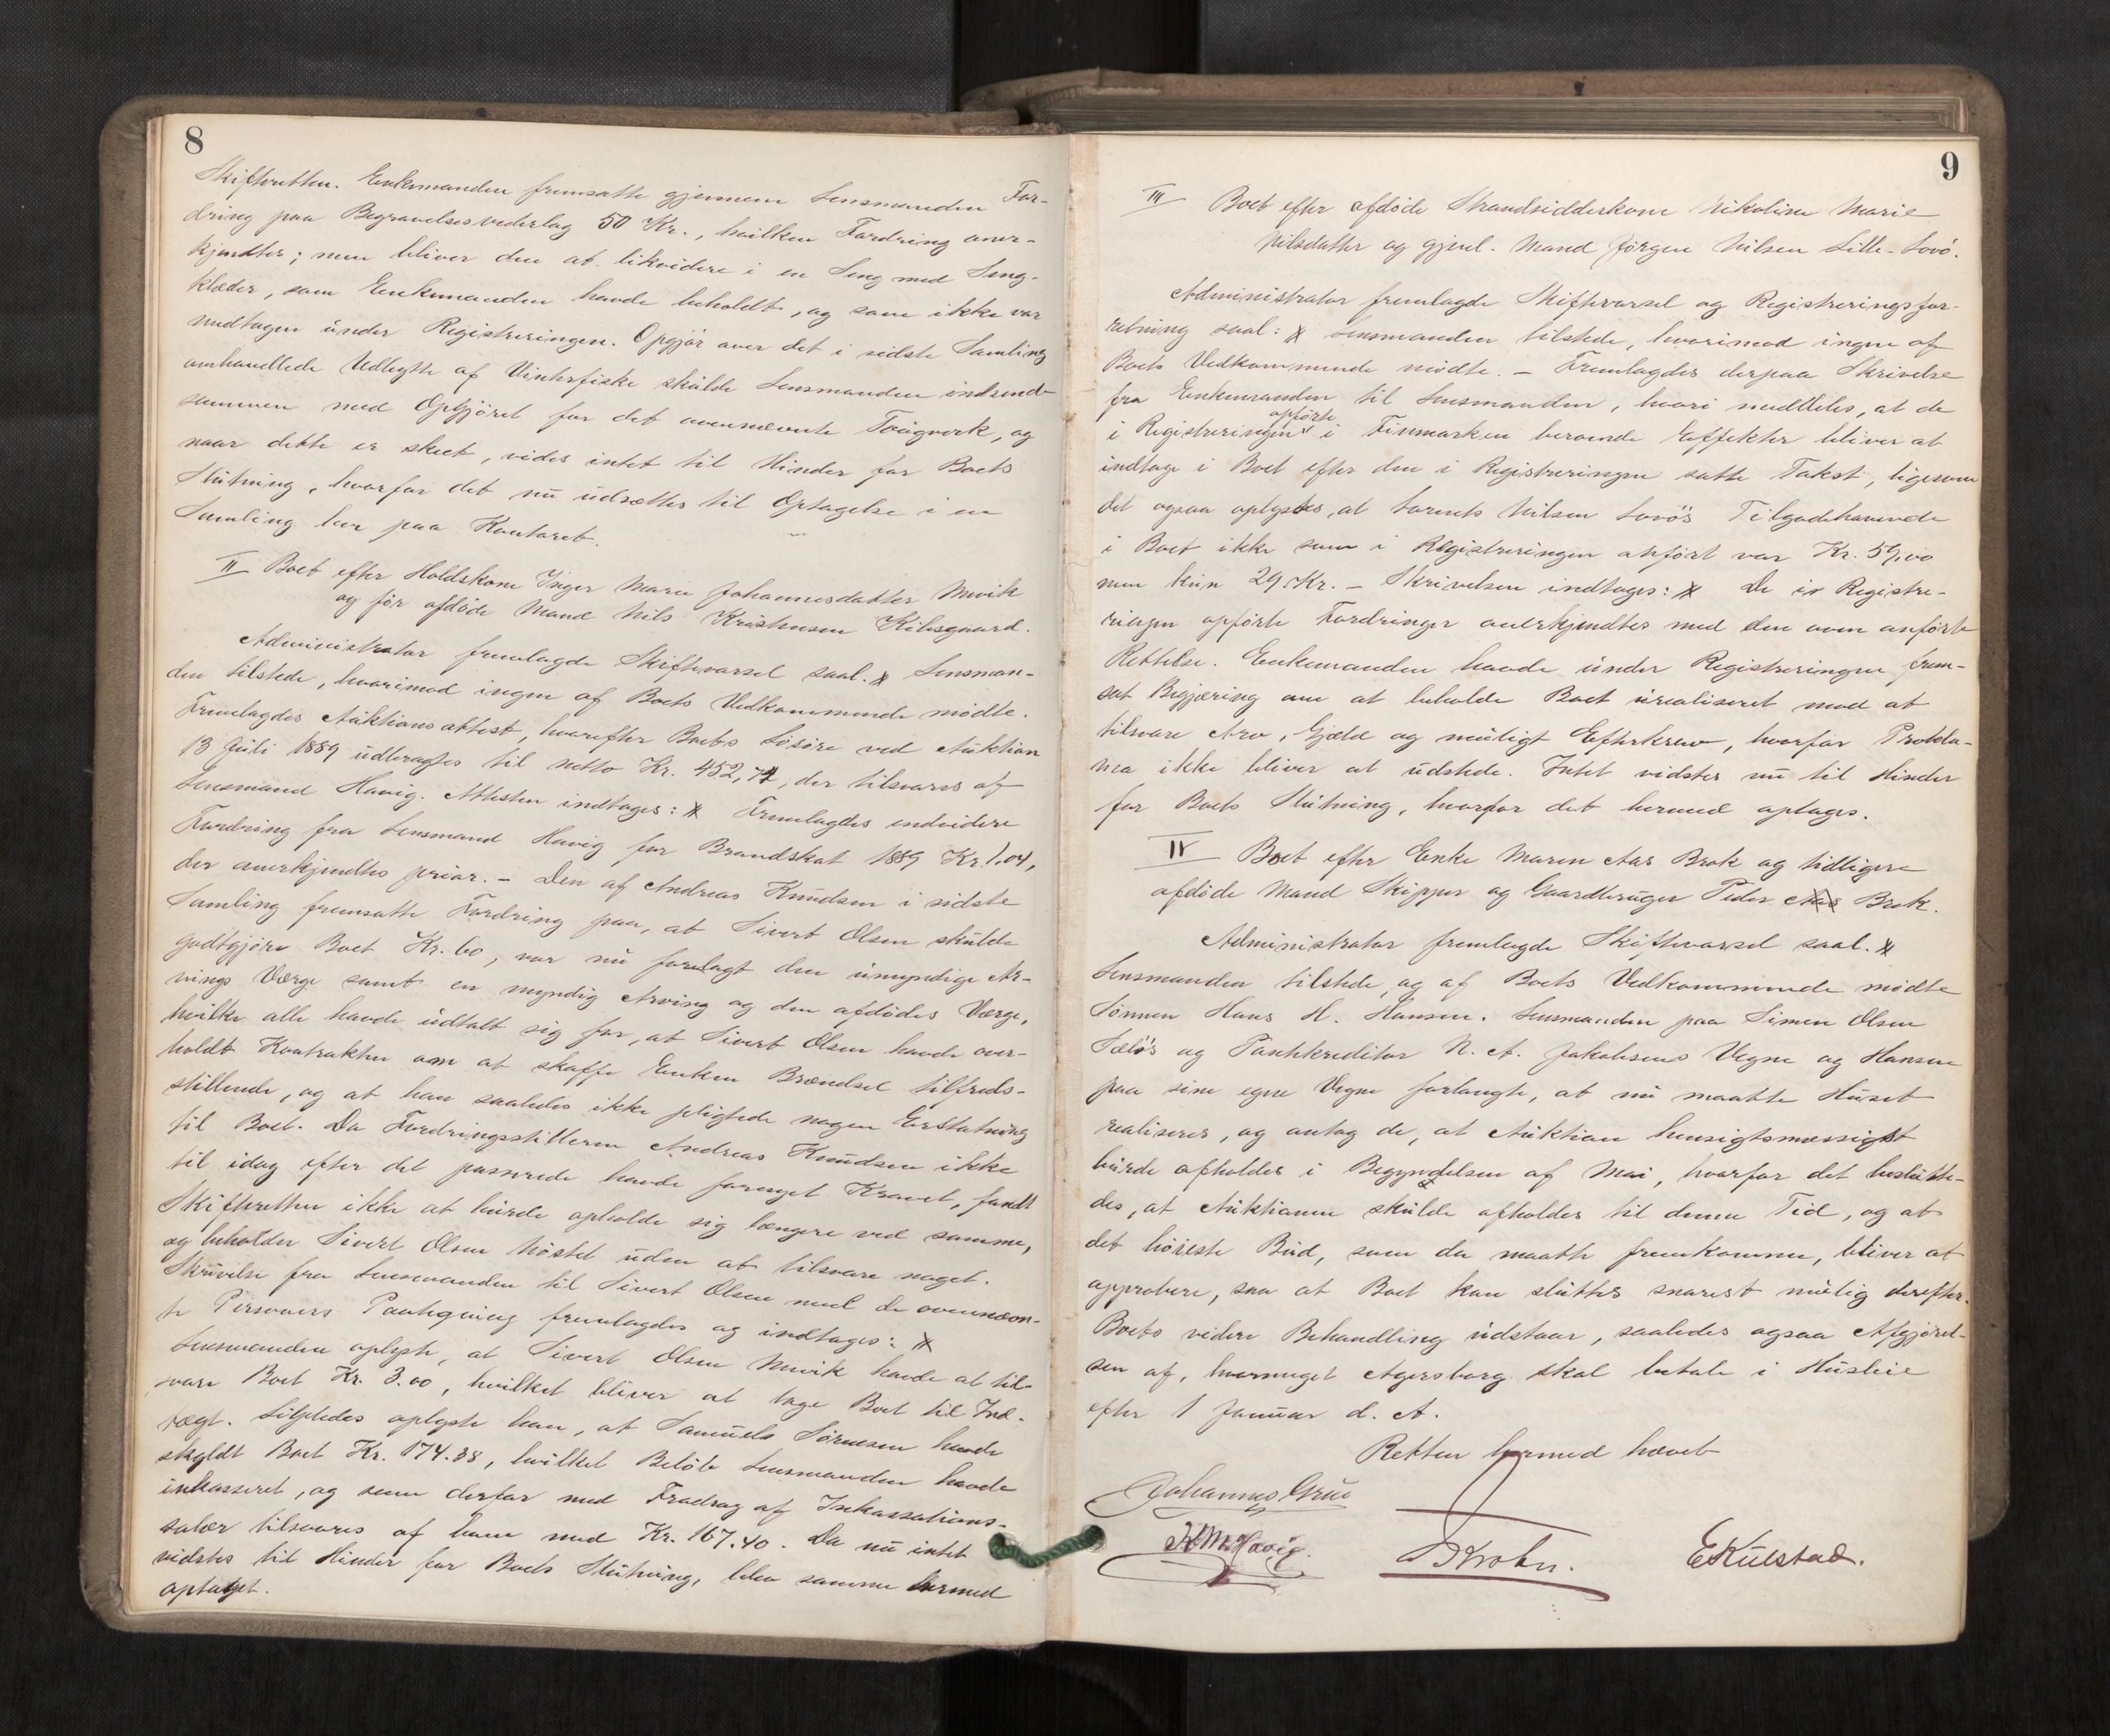 8
Skifteretten. Enkemanden fremsatte gjennem Lensmanden For-
dring paa Begravelsesvederlag 50 Kr., hvilken Fordring aner-
kjendtes; men bliver den at likvidere i en Seng med Seng-
klæder, som Enkemanden havde beholdt, og som ikke var
medtagen under Registreringen. Opgjør over det i sidste Samling
omhandlede Udbytte af Vinterfiske skulde Lensmanden indsende
sammen med Opgjøret for det ovennævnte Tougverk, og
naar dette er skeet, vides intet til Hinder for Boets
Slutning, hvorfor det nu udsættes til Optagelse i en
Samling her paa Kontoret.
II Boet efter Holdskone Inger Marie Johannesdatter Mevik
og før afdøde Mand Nils Kristensen Kilesgaard.
Administrator fremlagde Skiftevarsel saal. Lensman-
den tilstede, hvorimod ingen af Boets Vedkommende mødte.
Fremlagdes Auktionsattest, hvorefter Boets Løsøre ved Auktion
13 Juli 1889 udbragtes til netto Kr. 452,72, der tilsvares af
Lensmand Havig. Attesten indtages: Fremlagdes endvidere
Fordring fra Lensmand Havig for Brandskat 1889 Kr. 1.04,
der anerkjendtes prior. – Den af Andreas Knudsen i sidste
Samling fremsatte Fordring paa, at Sivert Olsen skulde
godtgjøre Boet Kr. 60, var nu forelagt den umyndige Ar-
vings Værge samt en myndig Arving og den afdødes Værge,
hvilke alle havde udtalt sig for, at Sivert Olsen havde over-
holdt Kontrakten om at skaffe Enken Brændsel tilfreds-
stillende, og at han saaledes ikke pligtede nogen Erstatning
til Boet. Da Fordringsstilleren Andreas Knudsen ikke
til idag efter det passerede havde foreaget Kravet, fandt
Skifteretten ikke at burde opholde sig længere ved samme,
og beholder Sivert Olsen Høstet uden at tilsvare noget.
Skrivelse fra Lensmanden til Sivert Olsen med de ovennævn-
te Personers Paategning fremlagdes og indtages:
Lensmanden oplyste, at Sivert Olsen Mevik havde at til-
svare Boet Kr. 3.00, hvilket bliver at tage Boet til Ind-
tægt. Ligeledes oplyste han, at Samuels Sørensen havde
skyldt Boet Kr. 174.38, hvilket Beløb Lensmanden havde
inkasseret, og som derfor med Fradrag af Inkassations-
salær tilsvares af ham med Kr. 167.40. Da nu intet
vidstes til Hinder for Boets Slutning, blev samme hermed
optaget.
9
III Boet efter afdøde Strandsidderkone Nikoline Marie
Nilsdatter og gjenl. Mand Jørgen Nilsen Lille-Lovø.
Administrator fremlagde Skiftevarsel og Registreringsfor-
retning saal: Lensmanden tilstede, hvorimod ingen af
Boets Vedkommende mødte. – Fremlagdes derpaa Skrivelse
fra Enkemanden til Lensmanden, hvori meddeles, at de
i Registreringen opførte i Finmarken beroende Effekter bliver at
indtage i Boet efter den i Registreringen satte Takst, ligesom
det ogsaa oplystes, at Lorents Nilsen Lovøs Tilgodehavende
i Boet ikke som i Registreringen anført var Kr. 59,00
men kun 29 Kr. – Skrivelsen indtages: De i Registre-
ringen opførte Fordringer anerkjendtes med den oven anførte
Rettelse. Enkemanden havde under Registreringen frem-
sat Begjæring om at beholde Boet urealiseret mod at
tilsvare Arv, Gjæld og muligt Efterkrav, hvorfor Prokla-
ma ikke bliver at udstede. Intet vidstes nu til Hinder
for Boets Slutning, hvorfor det hermed optages.
IV Boet efter Enke Maren Aas Brek og tidligere
afdøde Mand Skipper og Gaardbruger Peder Aas Brek.
Administrator fremlagde Skiftevarsel saal.
Lensmanden tilstede, og af Boets Vedkommende mødte
Sønnen Hans H. Hansen. Lensmanden paa Simon Olsen
Sæløs og Pantekreditor N. A. Jakobsens Vegne og Hansen
paa sine egne Vegne forlangte, at nu maatte Huset
realiseres, og antog de, at Auktion hensigtsmæssigst
burde afholdes i Begyndelsen af Mai, hvorfor det beslutte-
des, at Auktionen skulde afholdes til denne Tid, og at
det høieste Bud, som da maatte fremkomme, bliver at
approbere, saa at Boet kan sluttes snarest mulig derefter.
Boets videre Behandling udstaar, saaledes ogsaa Afgjørel-
sen af, hvormeget Agersborg skal betale i Husleie
efter 1 Januar d. A.
Retten hermed hævet
Johannes Grue
H M Havig. Krohn. E Kulstad.